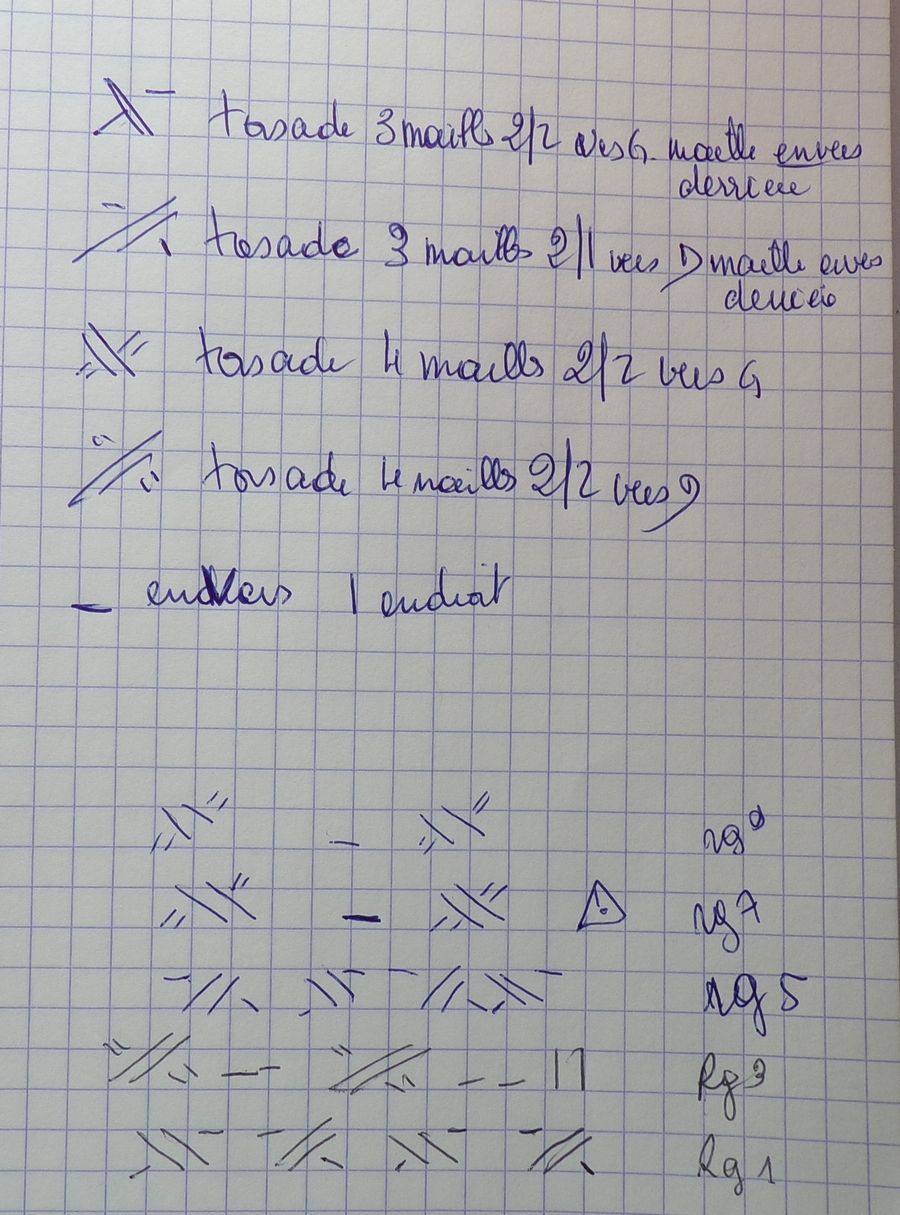 torsade 3 mailles 2/2 vers G maille envers
derriere
torsade 3 mailles 2/1 vers D maille envers
derriere
torsade 4 mailles 2/2 vers G
torsade 4 mailles 2/2 vers D
— envers | endroit
— rg 9
— rg 7
rg 5
— — — — | | Rg 3
Rg 1